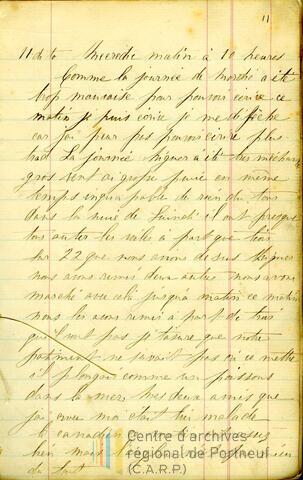 11
11 octo Mecredie matin à 10 heures
Comme la journée de marché a été
trop mauvaise pour pouvoir écrire ce
matin je puis écrire je me dépêche
car j'ai peur pas pouvoir écrire plus
tard La journée hyour a été des méchante
gros vent aigrope puie en même
temps inquapable de rien du tous
dans la nuit de l'undi il ont presque
tous autés les voiles à part que trois
sur 22 que nous avons de sus
nous avons remis deux autres nous avons
marché avec cela jusqua matin ce matin
nous les avons remis à part de trois
que l'ont pas je tasure que notre
batiment ne savait pas où ce mettre
il plongait comme un poissons
dans la mère mes deux amis que
j'ai avec moi était bin malade
le canadien
bien mais
du tout
Centre d'archives
régional de Portneuf
(C.A.R.P.)